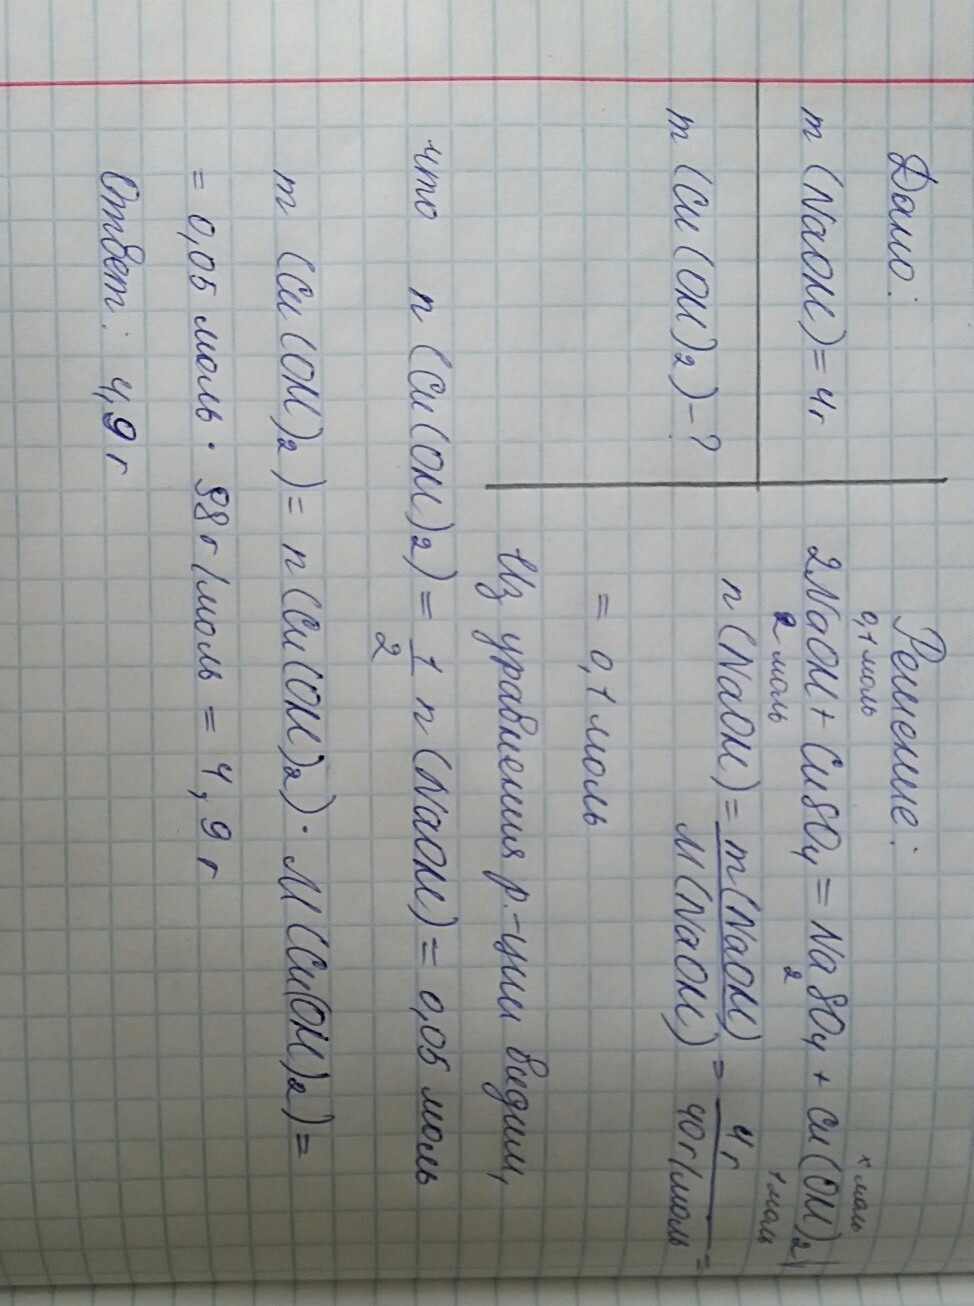 Дано:
m (NaOH) = 4г
m (Cu(OH)₂) - ?
Решение:
0,1 моль
x моль
2NaOH + CuSO₄ = Na₂SO₄ + Cu(OH)₂↓
2 моль
1 моль
n(NaOH) = m(NaOH) / M(NaOH) = 4г / 40г/моль =
= 0,1 моль
Из уравнения р.-ции видим,
что n (Cu(OH)₂) = 1/2 n (NaOH) = 0,05 моль
m (Cu(OH)₂) = n(Cu(OH)₂) · M(Cu(OH)₂) =
= 0,05 моль · 98г/моль = 4,9 г
Ответ: 4,9 г